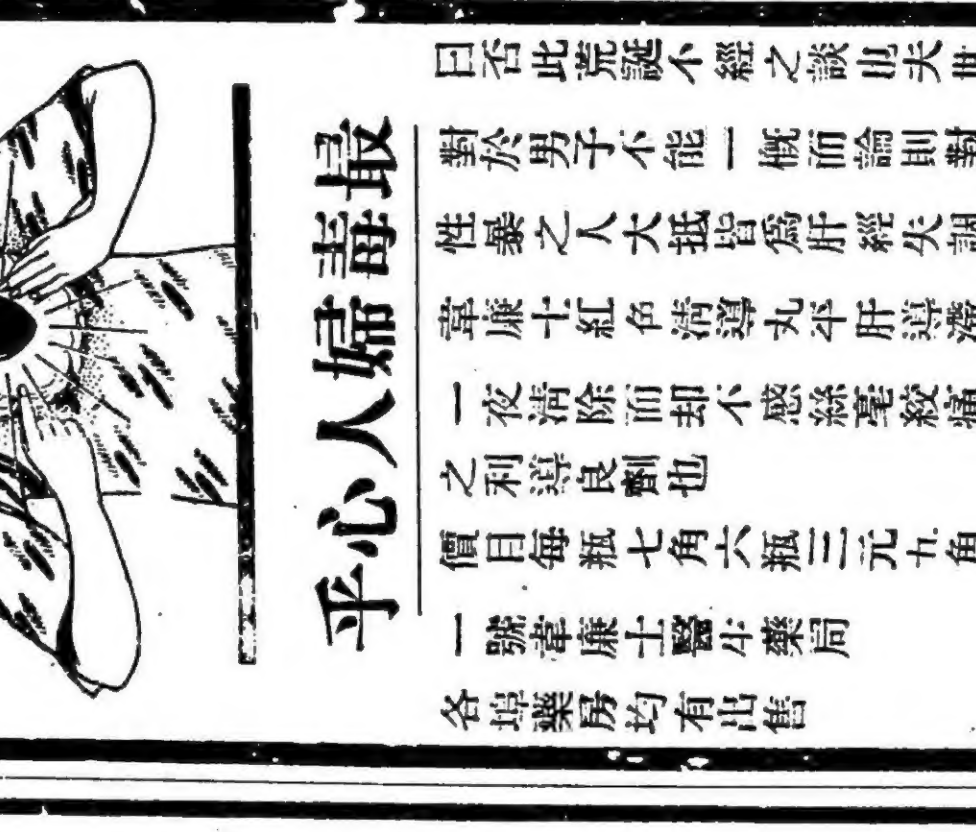 最毒婦人心乎
曰否此荒誕不經之談也夫世
對於男子不能一概而論則對
性暴之人大抵皆爲肝經失調
韋廉士紅色清導丸平肝導滯
一夜清除而却不感絲毫絞痛
之利導良劑也
價目每瓶七角六瓶三元五角
一號韋廉士醫生藥局
各埠藥房均有出售